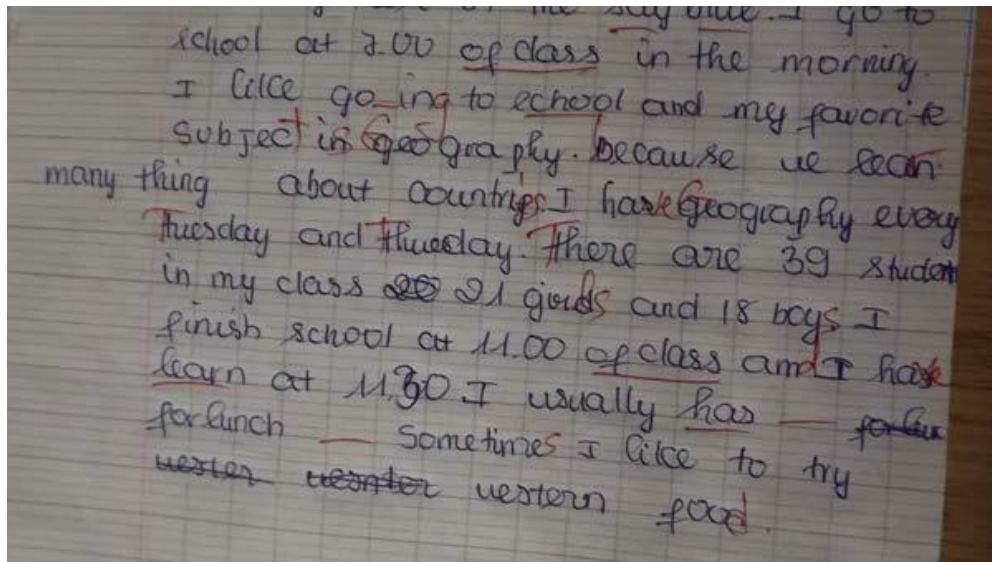 the sky blue. I go to
school at 7.00 of class in the morning.
I like go ing to echool and my favorite
subject is Geography. because we lean
many thing about countries. I have Geography every
Tuesday and Thueday. There are 39 student
in my class 21 girds and 18 boys I
finish school at 11.00 of class and I have
learn at 11.30 I usually has
for lunch Sometimes I like to try
western food.